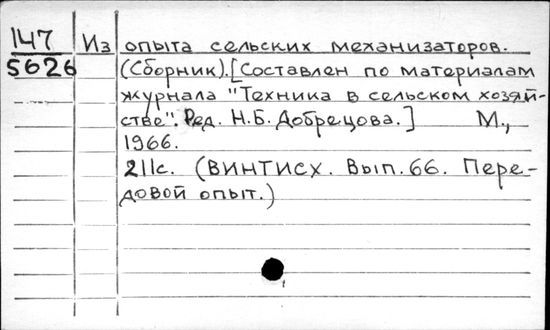 147 Из опыта сельских механизаторов.
5626 (Сборник).[Составлен по материалам
журнала "Техника в сельском хозяй-
стве". Ред. Н.Б. Добрецова.] М.,
1966.
211с. (ВИНТИСХ. Вып.66. Пере-
довой опыт.)